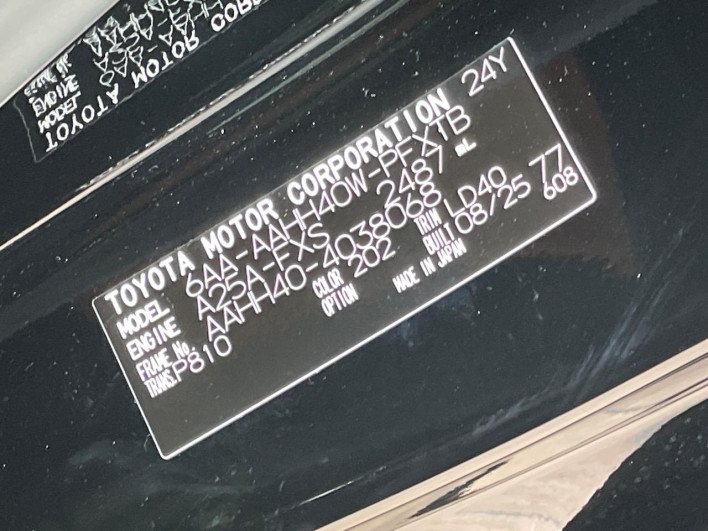 TOYOTA MOTOR CORPORATION 24Y
MODEL 6AA-AAHH40W-PFXTB
ENGINE A25A-FXS 2487 mL
FRAME No. AAHH40-4038068
COLOR 202 TRIM LD40
TRANS. P810 OPTION BUILT 08/25 77
MADE IN JAPAN 608